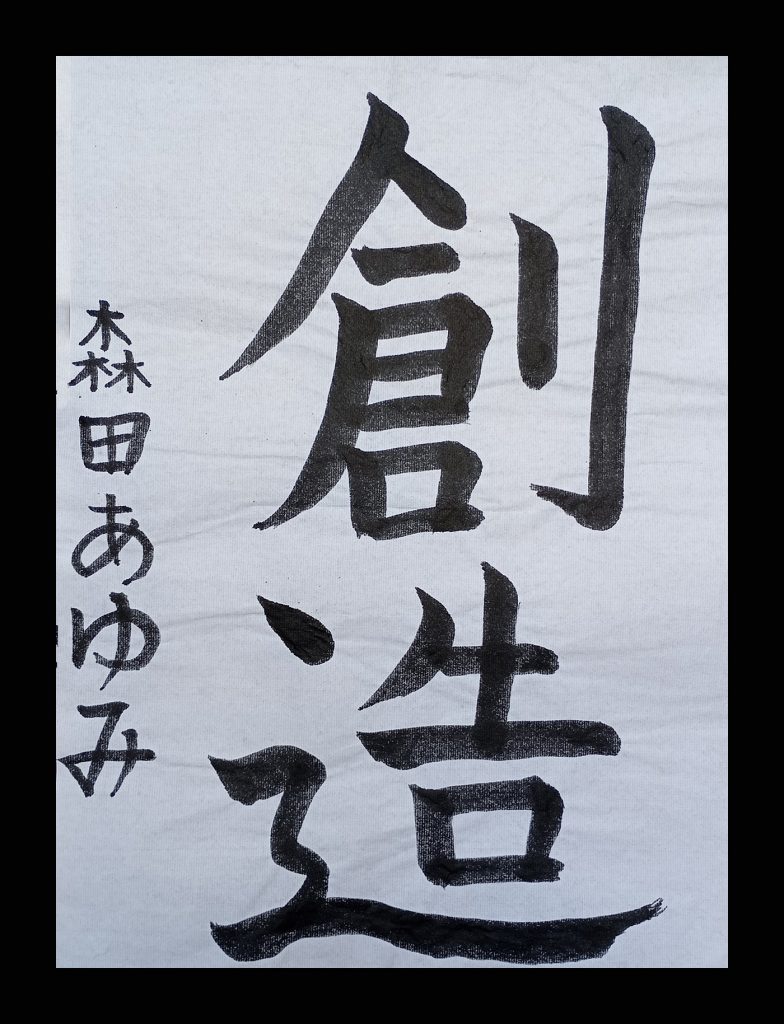 創造
森田あゆみ